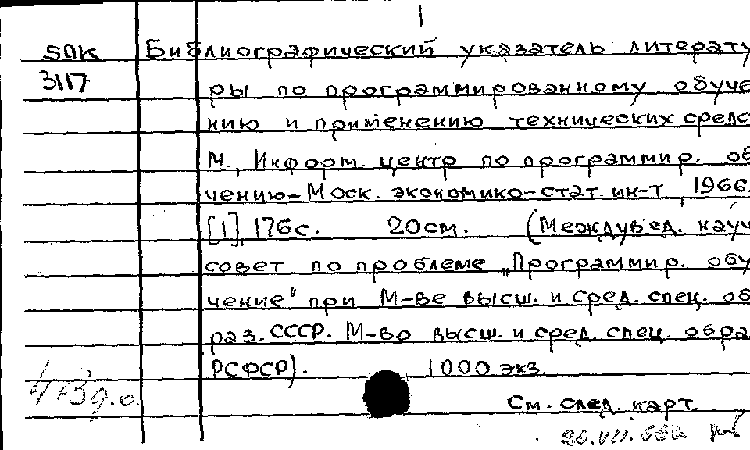 1
БПК Библиографический указатель литерату
3117 ры по программированному обуче
нию и применению технических средс
М., Информ. центр по программир. об
чению-Моск. экономико-стат. ин-т, 1966.
[1], 176с. 20см. (Междувед. науч
совет по проблеме „Программир. обу
чение" при М-ве высш. и сред. спец. об
раз. СССР. М-во высш. и сред. спец. обра
РСФСР). 1000 экз.
См. след. карт.